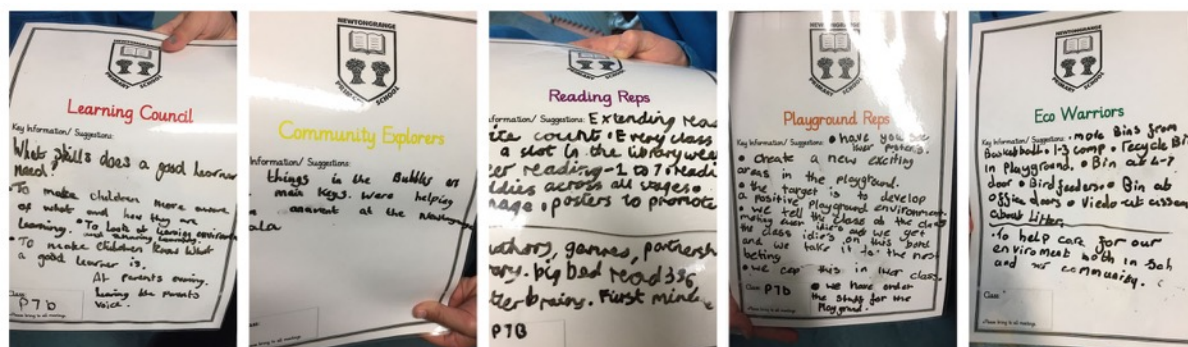 NEWTONGRANGE
PRIMARY SCHOOL
Learning Council
Key Information/ Suggestions:
What skills does a good learner
need?
• To make children more aware
of what and how they are
learning. • To look at learning environm
and
• To make children know what
a good learner is.
At parents evning.
hearing the parents
voice.
Class:
P7b
Please bring to all meetings
NEWTONGRANGE
PRIMARY SCHOOL
Community Explorers
Information/ Suggestions:
things in the Bubbles or
main keys. were helping
at the Newtong
ala
PRIMARY SCHOOL
Reading Reps
Information/ Suggestions: Extending rea
ite count • Every class
a slot in the library wee
er reading - 1 to 7 • readi
ddies across all stages •
nage • posters to promote
uthors, genres, partnersh
rary. big bed read 336
tter brains. First mini
P7B
NEWTONGRANGE
PRIMARY SCHOOL
Playground Reps
Key Information/ Suggestions: • have you see
posters.
• create a new exciting
areas in the playground.
• the target is to develop
a positive playground environment
• we tell the class at the class
meting even idie's and we get
the class idie's on this bord
and we take it to the next
beting
• we this in class.
Class:
P7b
• we have order
the stuff for the
playground.
Please bring to all meetings
NEWTONGRANGE
PRIMARY SCHOOL
Eco Warriors
Key Information/ Suggestions: • more Bins from
Basketball • 1-3 comp • recycle Bin
in playground. • Bin at 4-7
door • Bird feeders • Bin at
office doors • Viedo at assem
about litter
• To help care for our
enviroment both in Sch
and community.
Class:
Please bring to all meetings